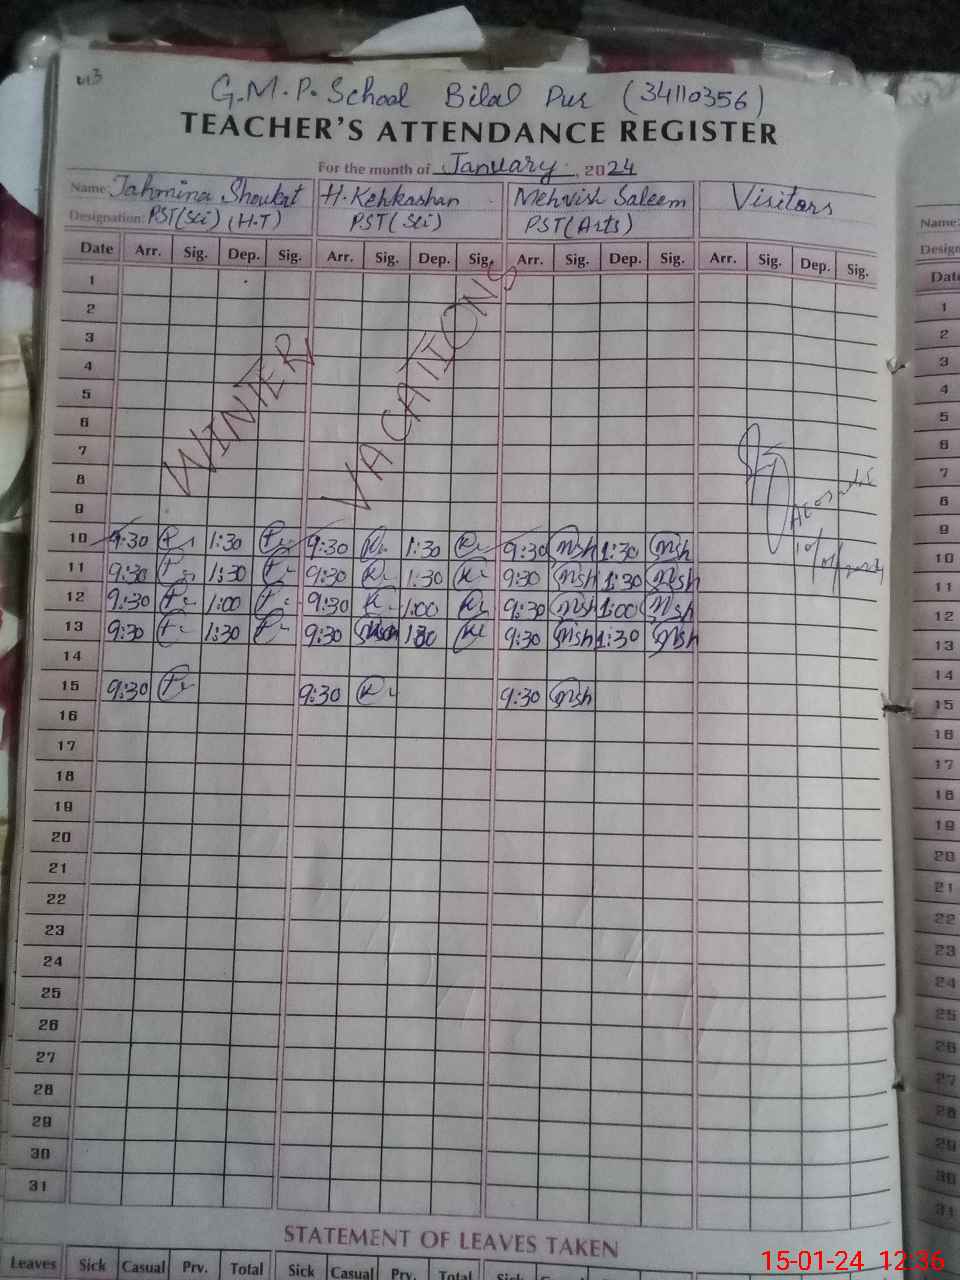 G.M.P. School Bilal Pur (34110356)
TEACHER'S ATTENDANCE REGISTER
For the month of January, 2024
Name: Tahmina Shoukat H. Kehkashan Mehvish Saleem Visitors
Designation: PST(Sci) (H.T) PST(Sci) PST(Arts)
Date Arr. Sig. Dep. Sig. Arr. Sig. Dep. Sig. Arr. Sig. Dep. Sig. Arr. Sig. Dep. Sig.
1
2
3
4
5
6
7
8
9
WINTER VACATIONS
10 9:30 1:30 9:30 1:30 9:30 Msh 1:30 Msh
11 9:30 1:30 9:30 1:30 9:30 Msh 1:30 Msh
12 9:30 1:00 9:30 1:00 9:30 Msh 1:00 Msh
13 9:30 1:30 9:30 1:30 9:30 Msh 1:30 Msh
14
15 9:30 9:30 9:30 Msh
16
17
18
19
20
21
22
23
24
25
26
27
28
29
30
31
STATEMENT OF LEAVES TAKEN
Leaves Sick Casual Prv. Total Sick Casual Prv. Total Sick
Name:
Date
1
2
3
4
5
6
7
8
9
10
11
12
13
14
15
16
17
18
19
20
21
22
23
24
25
26
27
28
29
30
31
15-01-24 12:36